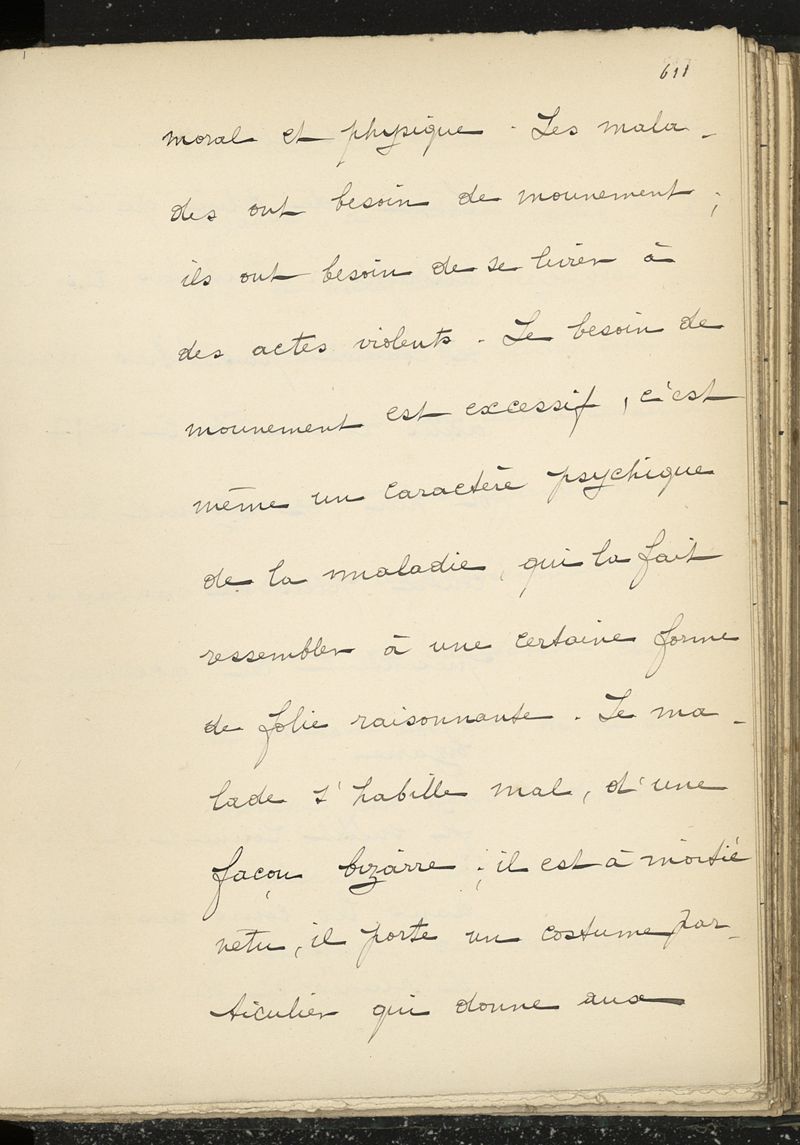 611
moral et physique. Les mala-
des ont besoin de mouvement;
ils ont besoin de se livrer à
des actes violents. Le besoin de
mouvement est excessif, c'est
même un caractère psychique
de la maladie, qui la fait
ressembler à une certaine forme
de folie raisonnante. Le ma-
lade s'habille mal, d'une
façon bizarre; il est à moitié
vetu, il porte un costume par-
ticulier qui donne aux